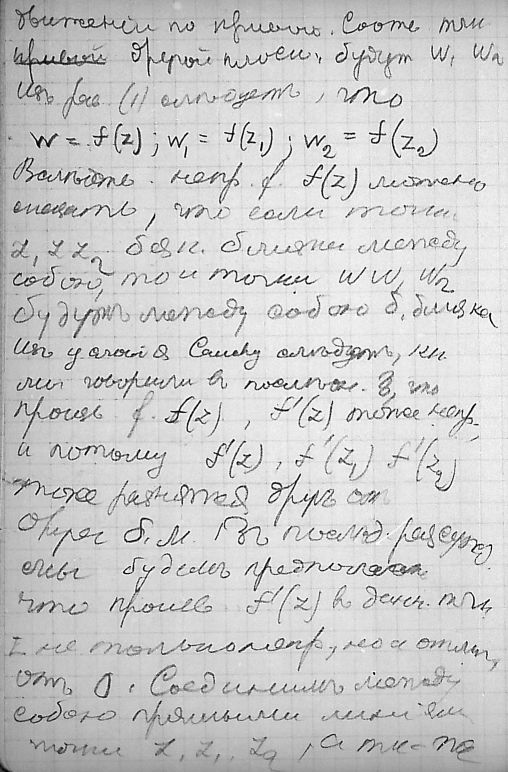 движении по кривой. Соотв. точки
кривой другой плоск. будут w, w₂
Изъ рав. (1) слѣдуетъ, что
w = f(z); w₁ = f(z₁); w₂ = f(z₂)
непр. f. f(z) можно
сказать, что если точки
z, z z₂ безк. близки между
собою, то и точки w w, w₂
будутъ между собою б. близки
Изъ условія Cauchy слѣдуетъ, какъ
мы говорили въ что
произв f. f(z), f'(z) тоже непр.
и потому f'(z), f'(z₁) f'(z₂)
тоже разнятся другъ отъ
друга б. м. Въ послѣд. разсужд.
мы будемъ предполагать
что произв f'(z) въ данн. точкѣ
z не только непр., но и отлич,
отъ 0. Соединимъ между
собою прямыми линіями
точки z, z₁, z₂, а